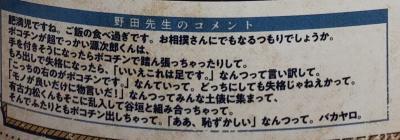 野田先生のコメント
肥満児ですね。ご飯の食べ過ぎです。お相撲さんにでもなるつもりでしょうか。
ポコチンが超でっかい源次郎くんは、
手を付きそうになったらポコチンで踏ん張っちゃったりして。
もろ出しで失格になったら、「いいえこれは足です。」なんつって言い訳して。
「こっちの右のがポコチンです。」なんていって。どっちにしても失格じゃねえかって。
「モノが良いだけに物言いだ！」なんつってみんな土俵に集まって、
有古力松くんもそこに乱入して谷垣と組み合っちゃって。
そんでふたりともポコチン出しちゃって。「ああ、恥ずかしい」なんつって。バカヤロ。